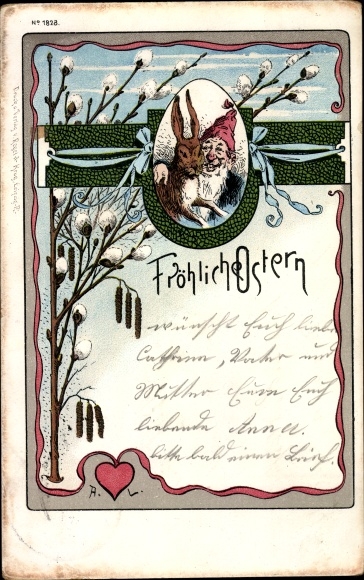 No 1828.
Fröhliche Ostern
wünscht Euch liebe
Cathrina, Vater und
Mutter Eure Euch
liebende Anna.
bitte bald einen Brief.
A. L.